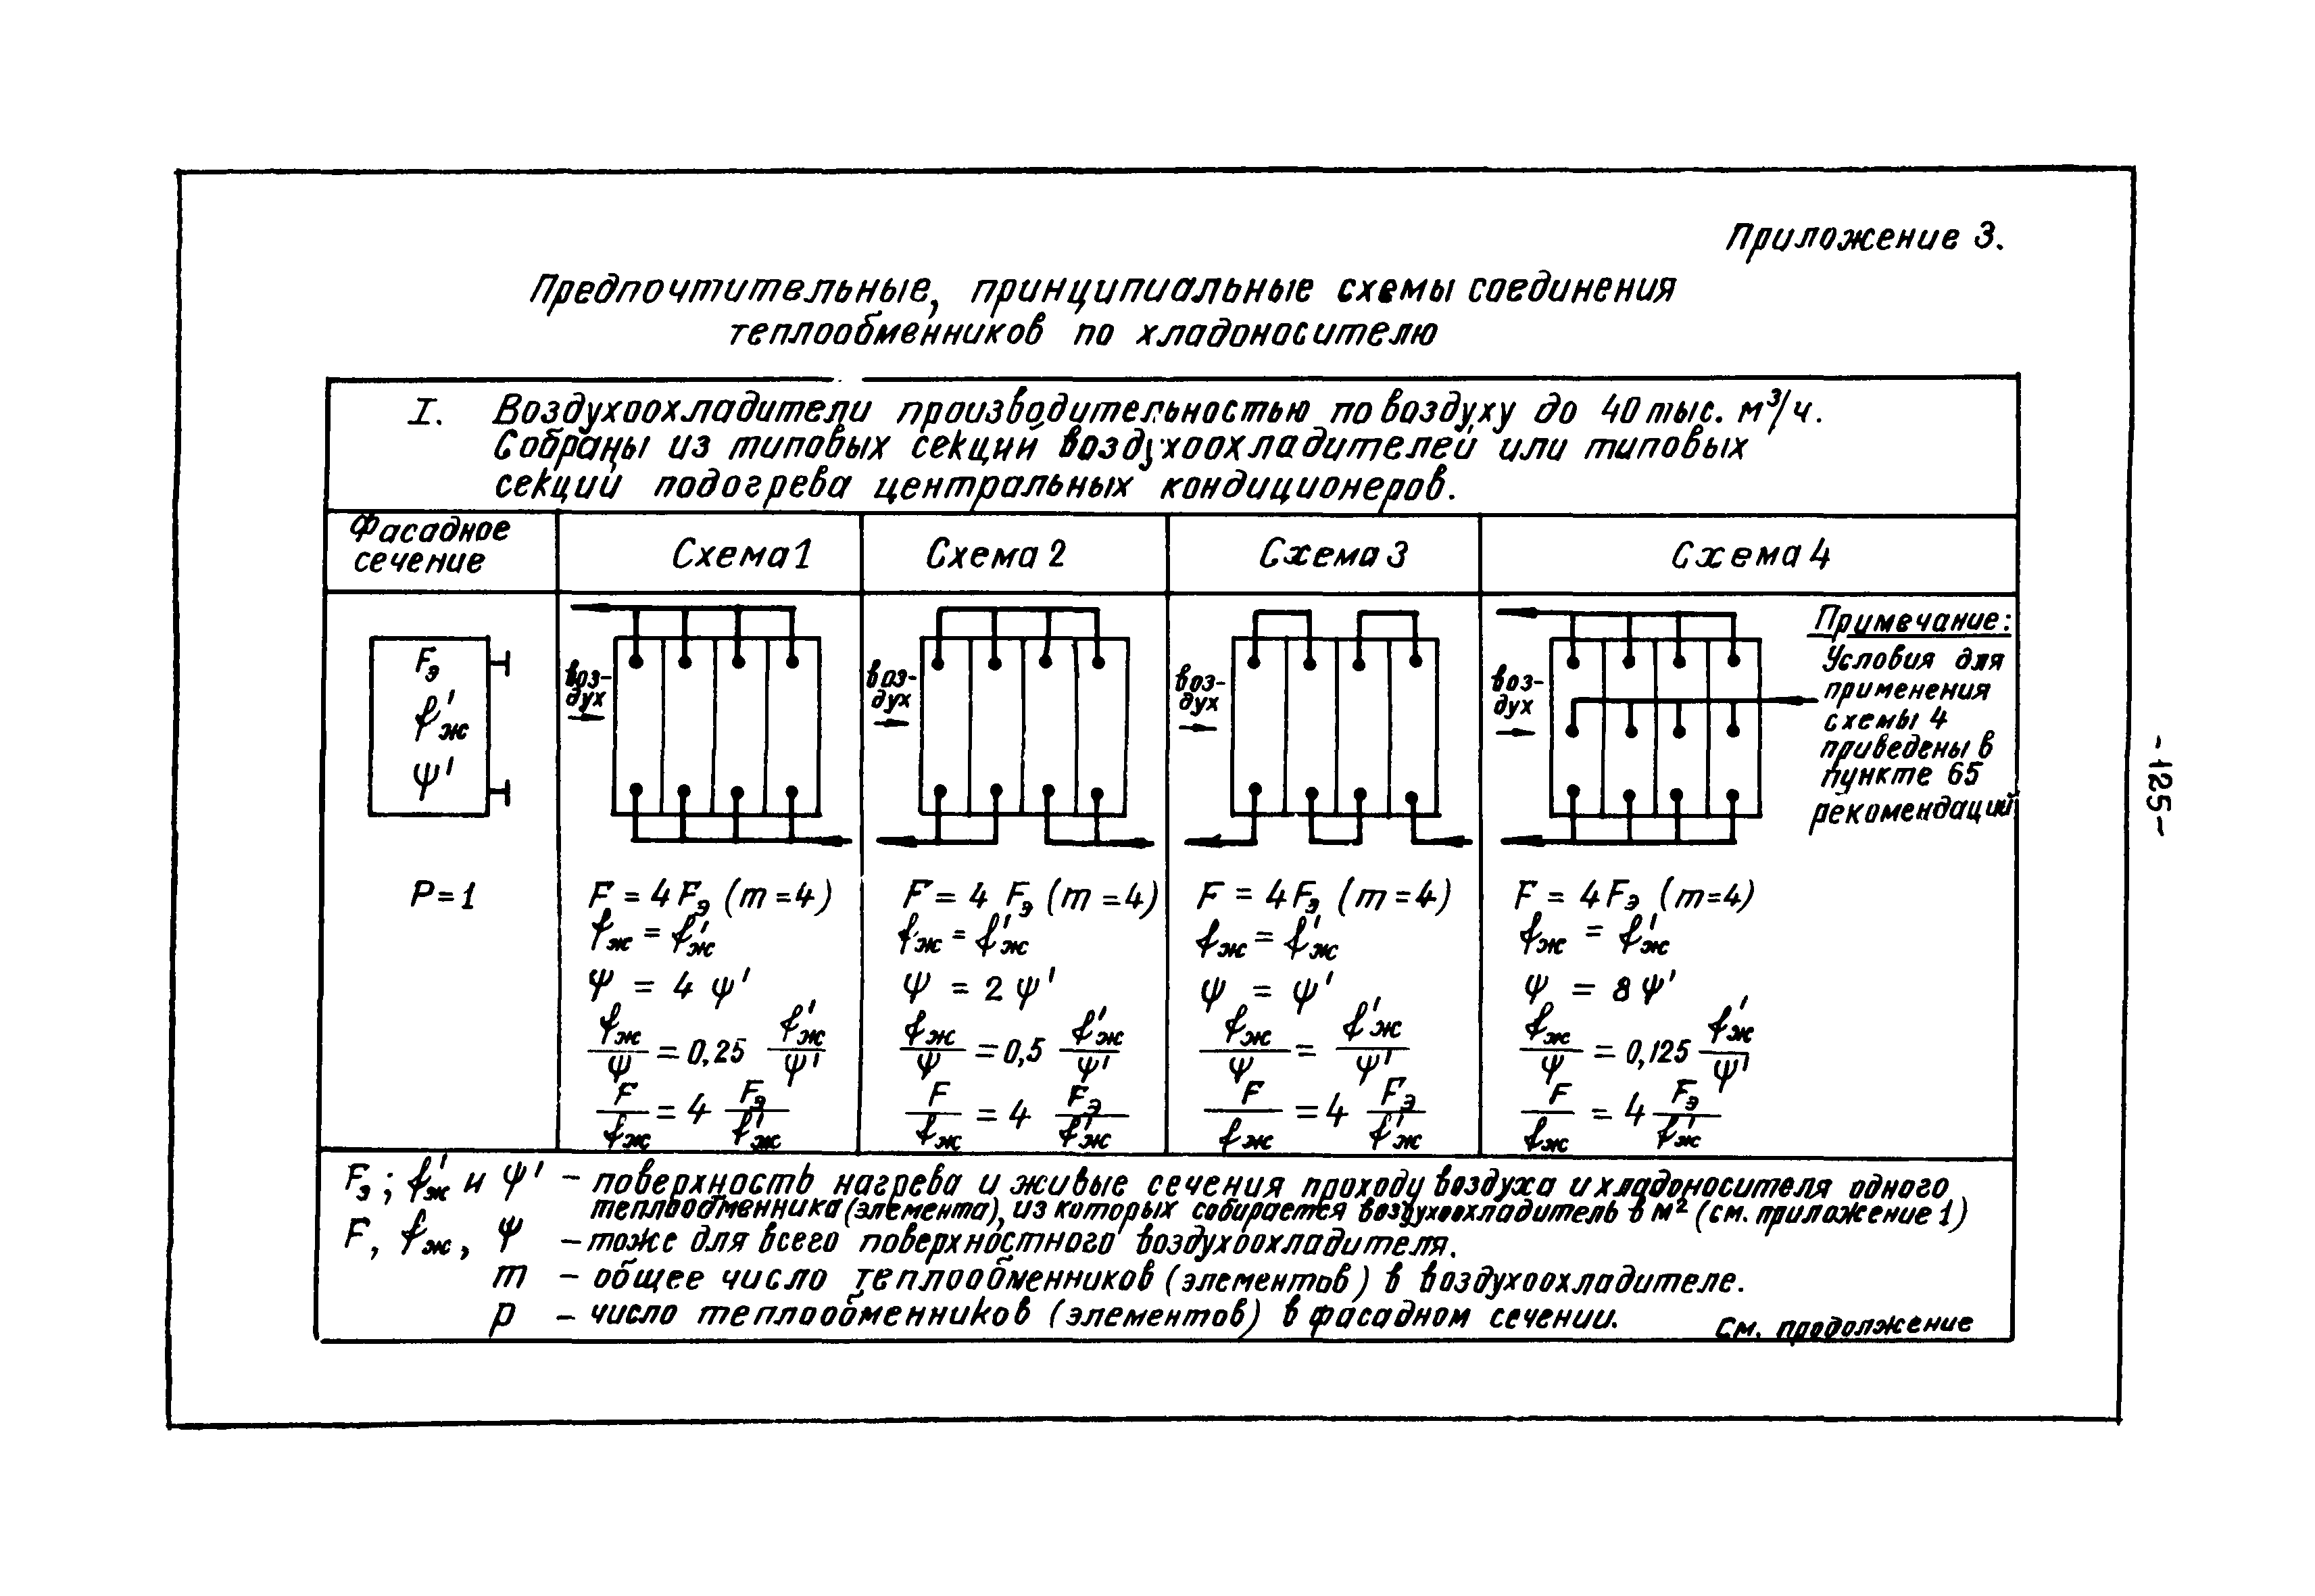 Приложение 3.
Предпочтительные, принципиальные схемы соединения
теплообменников по хладоносителю
I. Воздухоохладители производительностью по воздуху до 40 тыс. м³/ч.
Собраны из типовых секций воздухоохладителей или типовых
секций подогрева центральных кондиционеров.
Фасадное
сечение
Схема 1
Схема 2
Схема 3
Схема 4
Fэ
f'ж
ψ'
P=1
воз-
дух
F = 4Fэ (m=4)
fж = f'ж
ψ = 4 ψ'
fж/ψ = 0,25 f'ж/ψ'
F/fж = 4 Fэ/f'ж
воз-
дух
F = 4 Fэ (m=4)
fж = f'ж
ψ = 2 ψ'
fж/ψ = 0,5 f'ж/ψ'
F/fж = 4 Fэ/f'ж
воз-
дух
F = 4Fэ (m=4)
fж = f'ж
ψ = ψ'
fж/ψ = f'ж/ψ'
F/fж = 4 Fэ/f'ж
воз-
дух
Примечание:
Условия для
применения
схемы 4
приведены в
пункте 65
рекомендаций
F = 4Fэ (m=4)
fж = f'ж
ψ = 8ψ'
fж/ψ = 0,125 f'ж/ψ'
F/fж = 4 Fэ/f'ж
Fэ; f'ж и ψ' – поверхность нагрева и живые сечения проходу воздуха и хладоносителя одного
теплообменника (элемента), из которых собирается воздухоохладитель в м² (см. приложение 1)
F, fж, ψ – тоже для всего поверхностного воздухоохладителя.
m – общее число теплообменников (элементов) в воздухоохладителе.
p – число теплообменников (элементов) в фасадном сечении.
См. продолжение
-125-